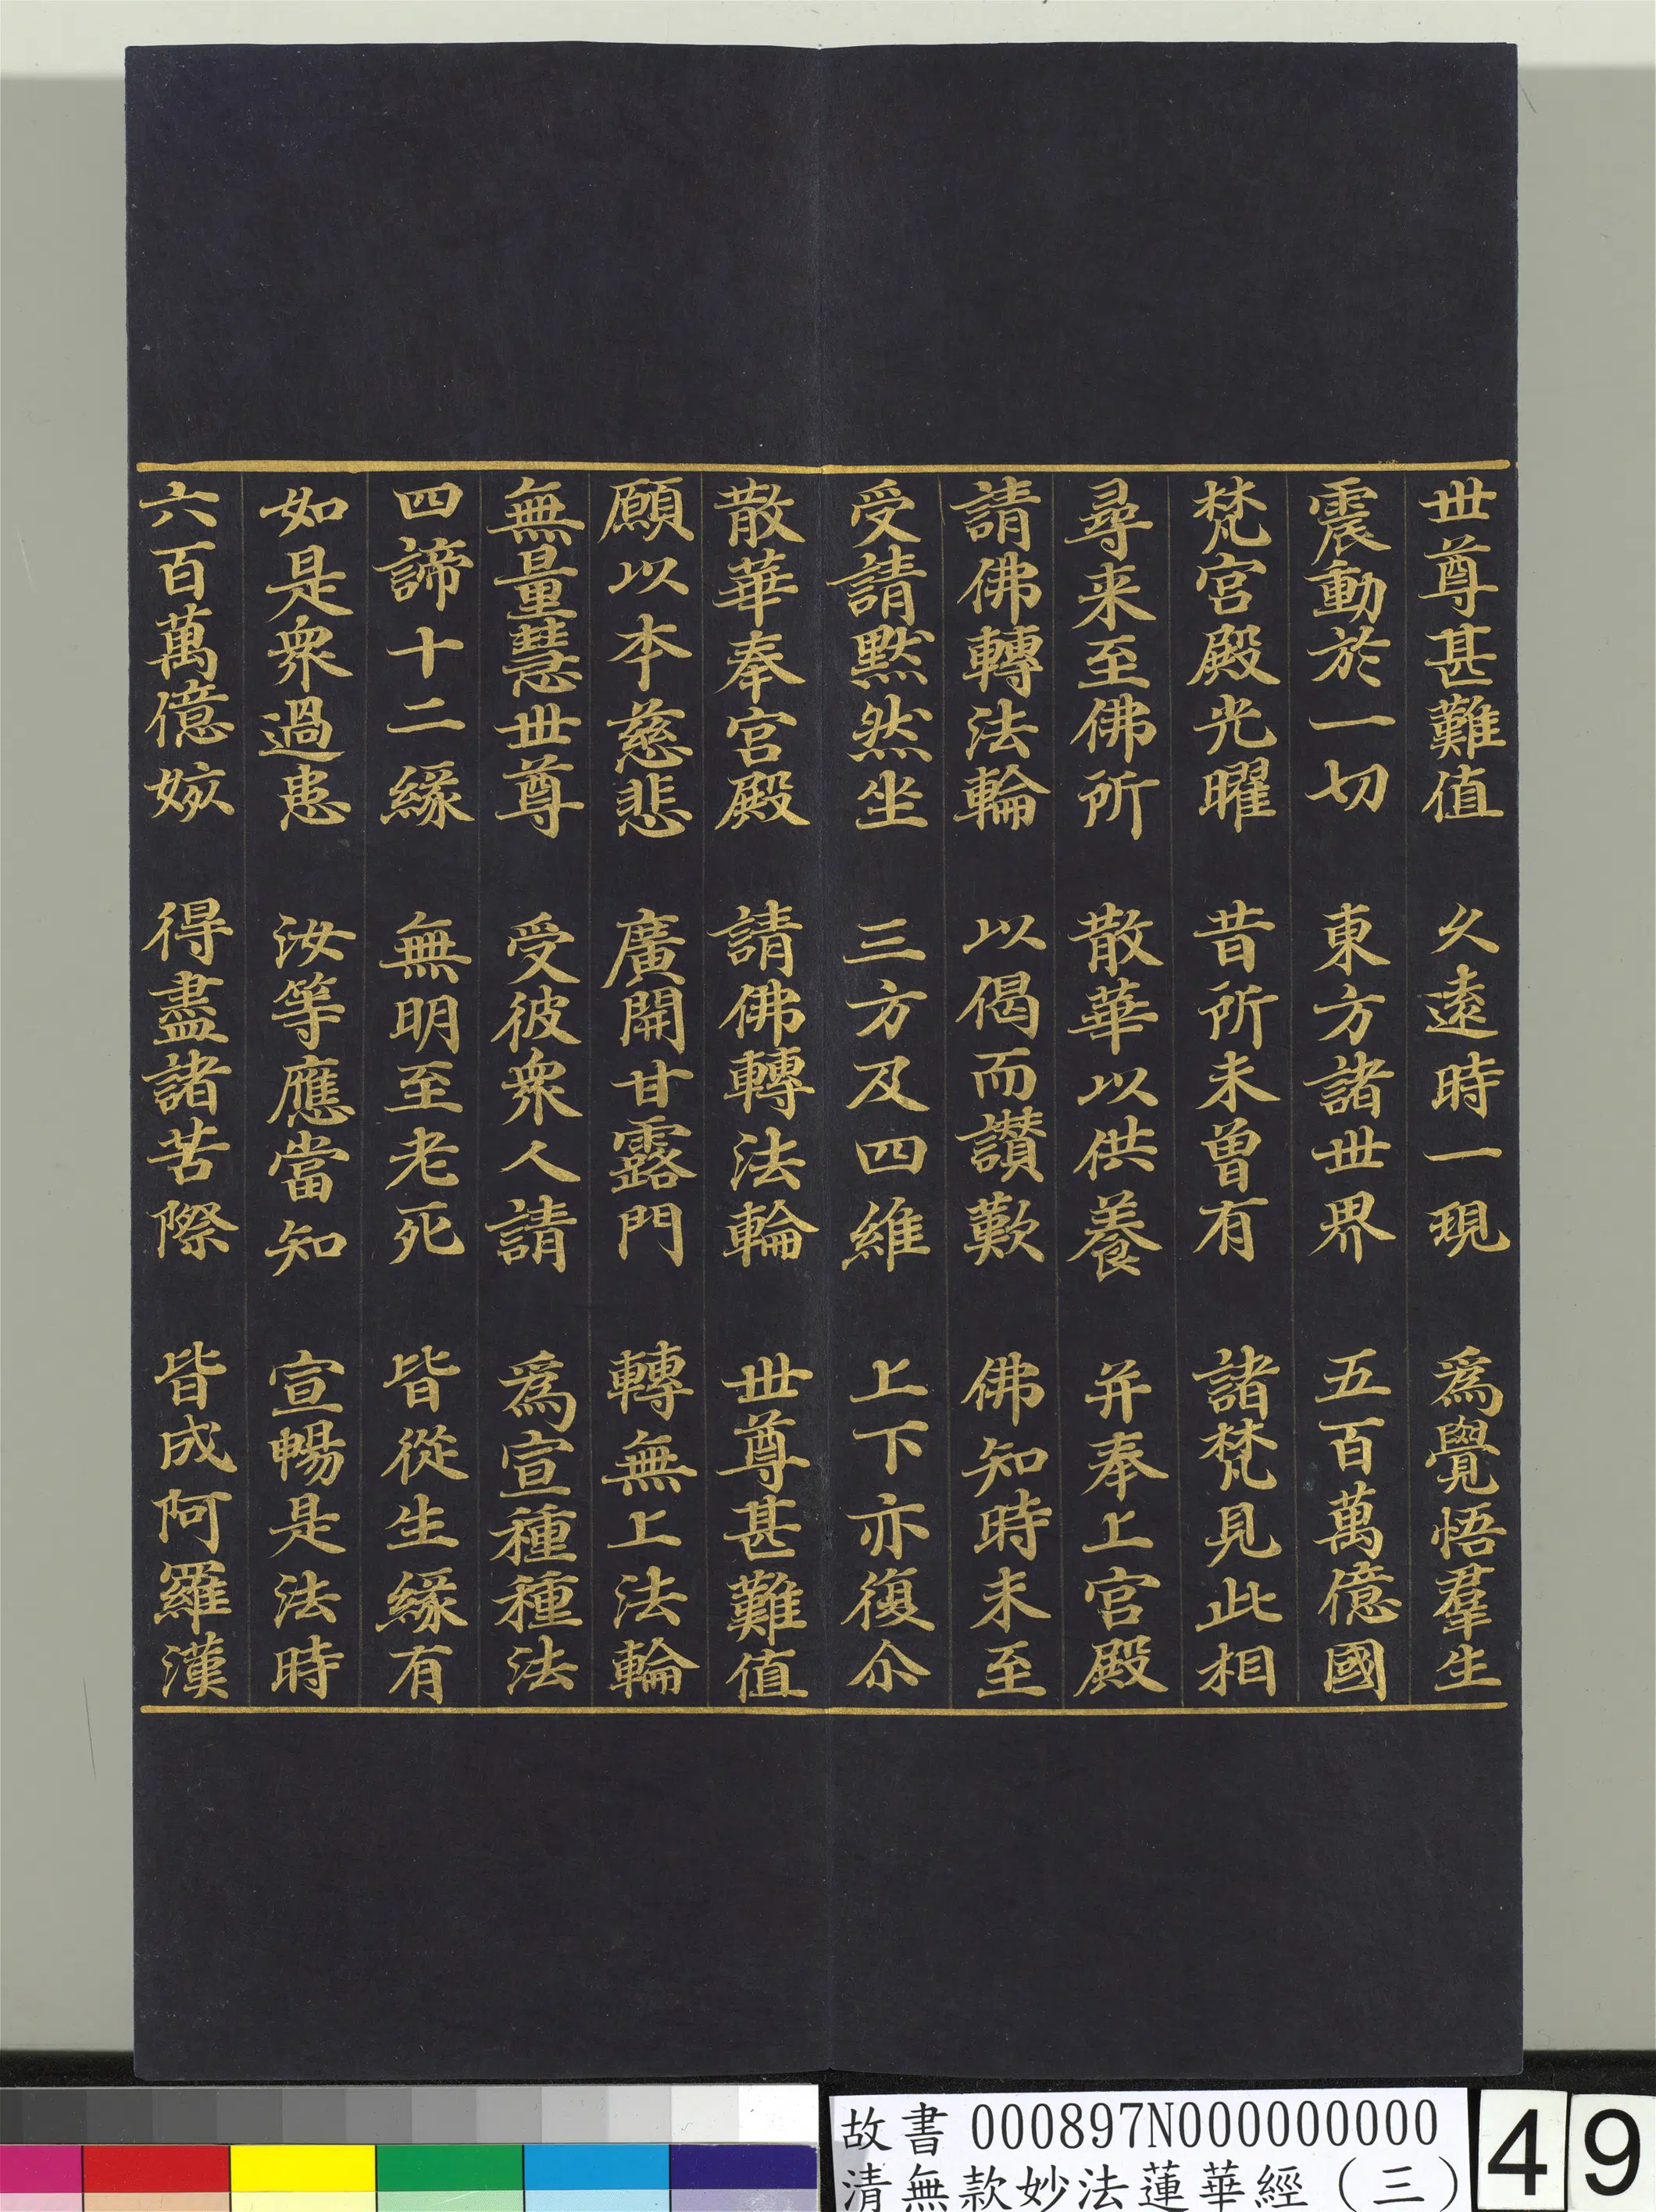 世尊甚難值　久遠時一現　爲覺悟羣生
震動於一切　東方諸世界　五百萬億國
梵宮殿光曜　昔所未曾有　諸梵見此相
尋来至佛所　散華以供養　并奉上宮殿
請佛轉法輪　以偈而讚歎　佛知時未至
受請默然坐　三方及四維　上下亦復尒
散華奉宮殿　請佛轉法輪　世尊甚難值
願以本慈悲　廣開甘露門　轉無上法輪
無量慧世尊　受彼衆人請　爲宣種種法
四諦十二緣　無明至老死　皆從生緣有
如是衆過患　汝等應當知　宣暢是法時
六百萬億姟　得盡諸苦際　皆成阿羅漢
故書 000897N000000000
清無款妙法蓮華經（三）
49